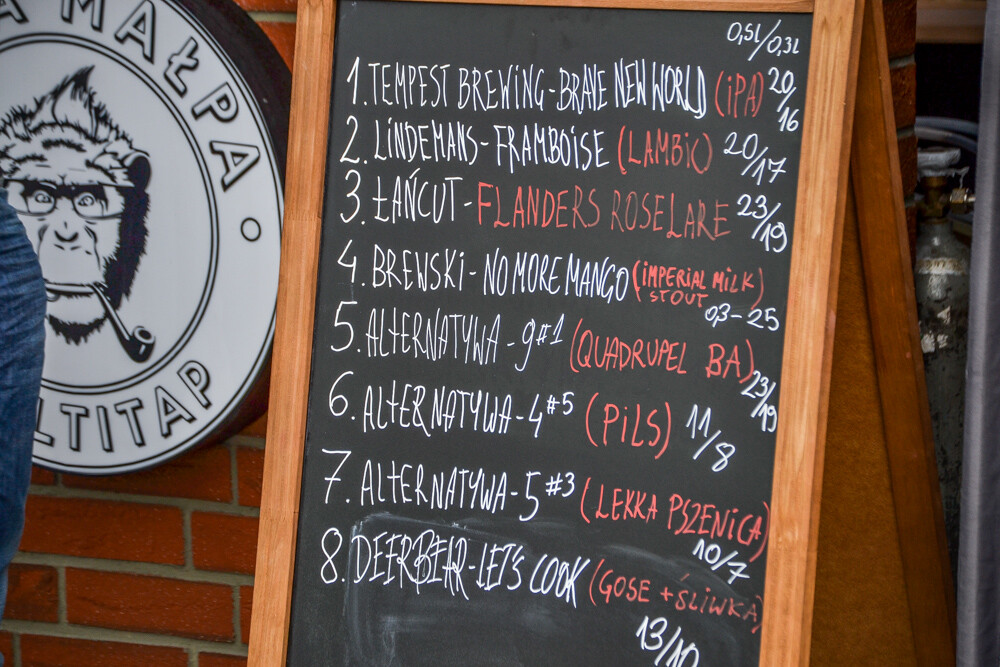 A MAŁPA
LTITAP
0,5l/0,3l
1. TEMPEST BREWING - BRAVE NEW WORLD (IPA) 20/16
2. LINDEMANS - FRAMBOISE (LAMBIC) 20/17
3. ŁAŃCUT - FLANDERS ROSELARE 23/19
4. BREWSKI - NO MORE MANGO (IMPERIAL MILK
STOUT)
0,3 - 25
5. ALTERNATYWA - 9#1 (QUADRUPEL BA)
23/19
6. ALTERNATYWA - 4#5 (PILS) 11/8
7. ALTERNATYWA - 5#3 (LEKKA PSZENICA)
10/7
8. DEERBEAR - LET'S COOK (GOSE + ŚLIWKA)
13/10